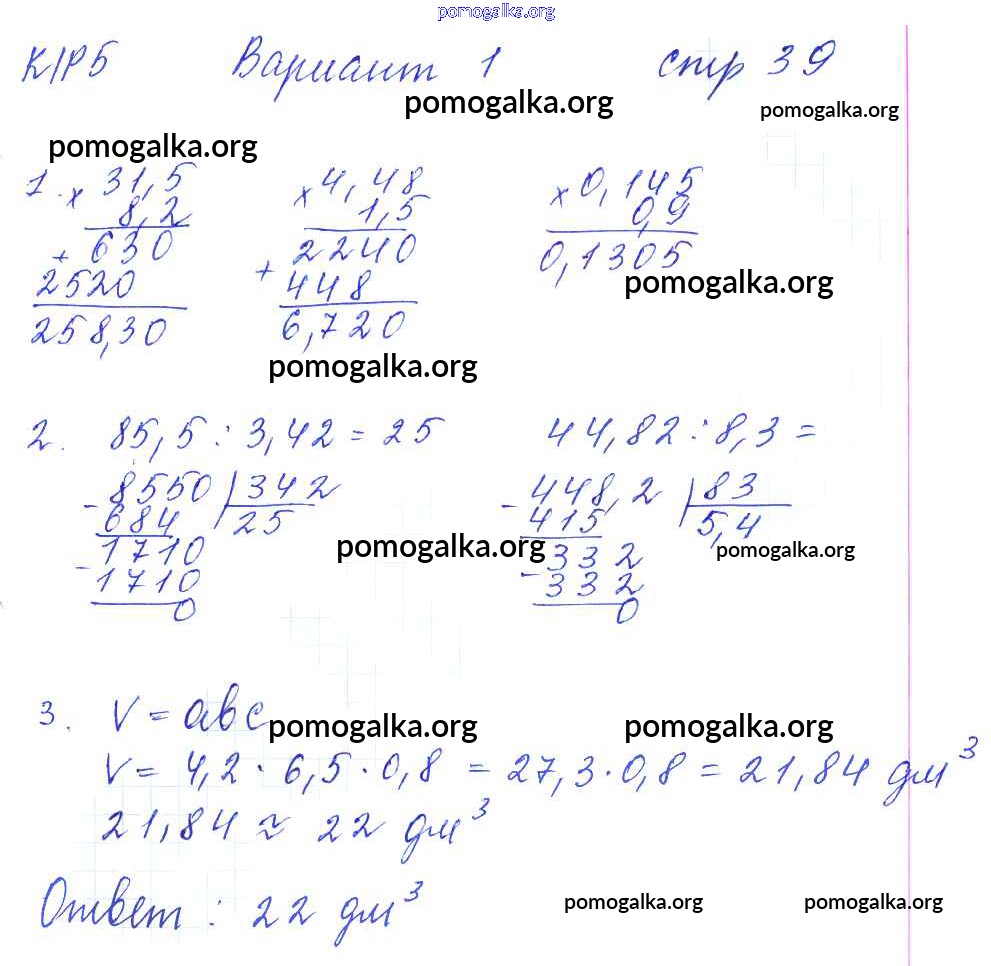 pomogalka.org
К/Р 5 Вариант 1 стр 39
pomogalka.org pomogalka.org
pomogalka.org
1. × 31,5 × 4,48 × 0,145
8,2 1,5 0,9
+ 630 2240 0,1305
2520 + 448 pomogalka.org
258,30 6,720
pomogalka.org
2. 85,5 : 3,42 = 25 44,82 : 8,3 =
- 8550 | 342 - 448,2 | 83
684 25 415 5,4
- 1710 pomogalka.org - 332 pomogalka.org
1710 332
0 0
3. V = abc pomogalka.org pomogalka.org
V = 4,2 · 6,5 · 0,8 = 27,3 · 0,8 = 21,84 дм³
21,84 ≈ 22 дм³
Ответ : 22 дм³ pomogalka.org pomogalka.org